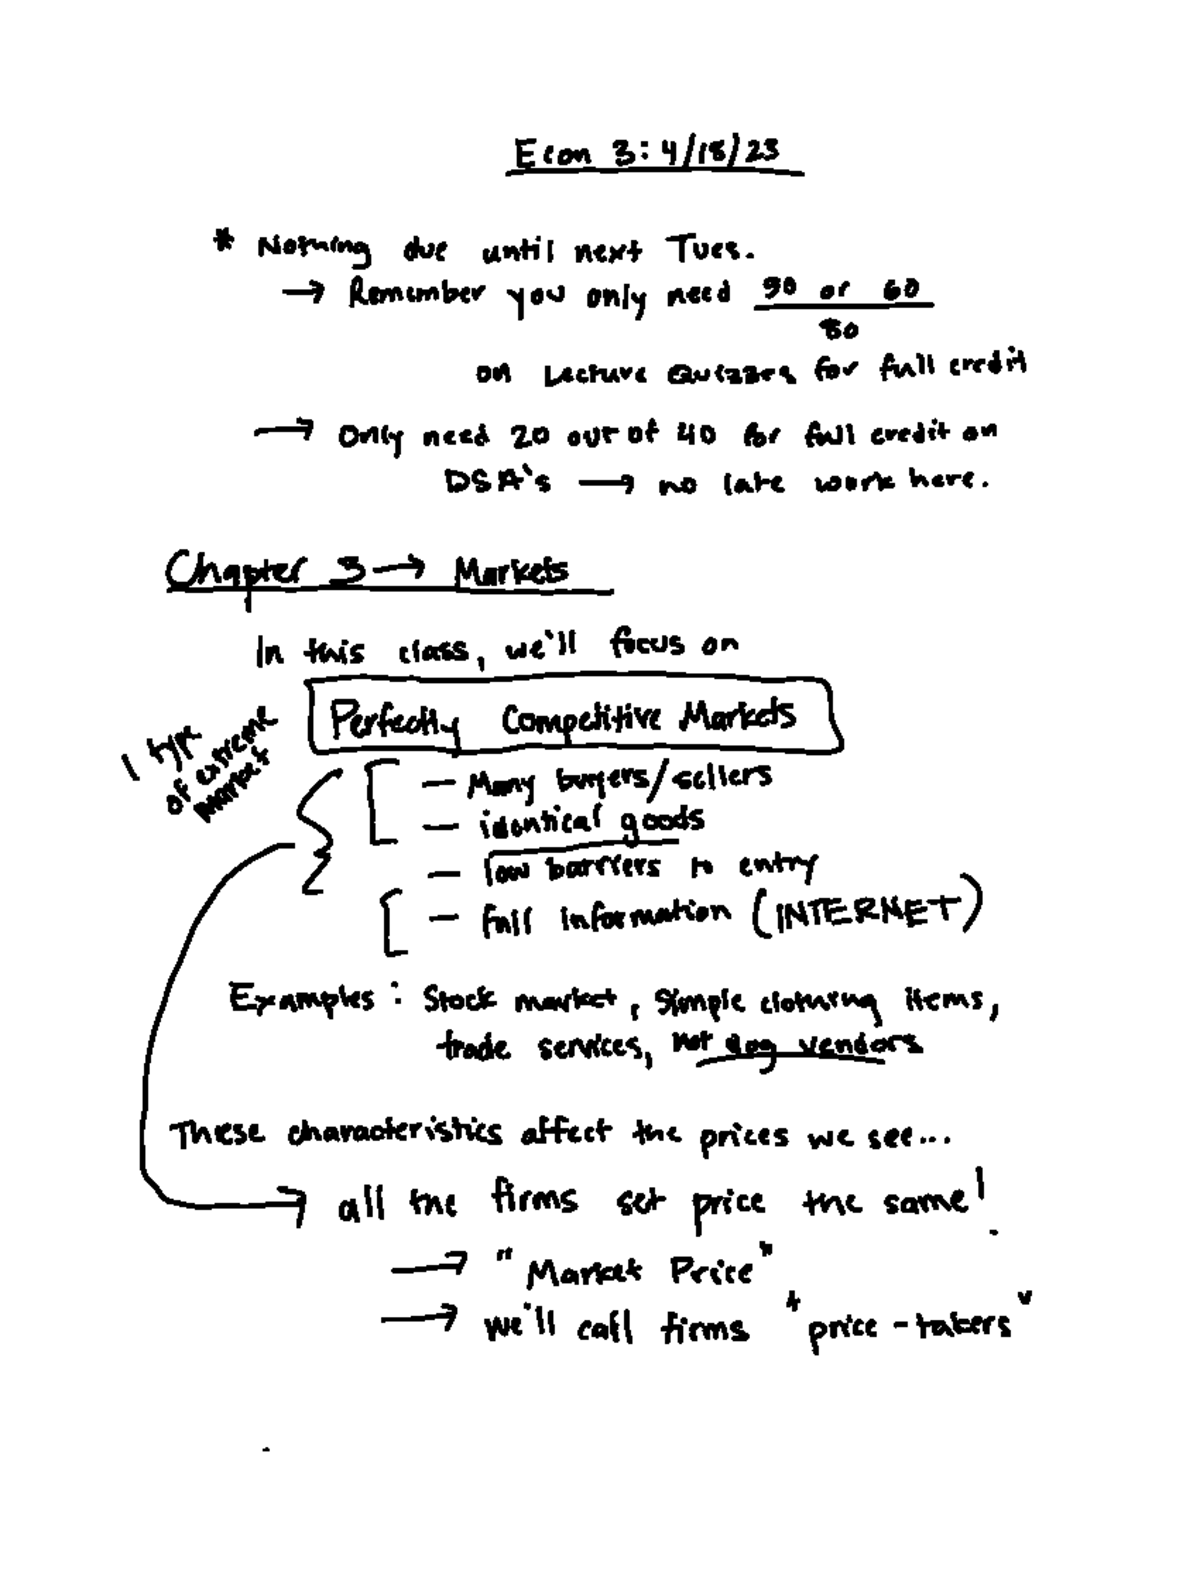 Econ 3: 4/18/23
* Nothing due until next Tues.
→ Remember you only need 50 or 60
80
on Lecture Quizzes for full credit
→ Only need 20 out of 40 for full credit on
DSA's → no late work here.
Chapter 3 → Markets
In this class, we'll focus on
Perfectly Competitive Markets
1 type
of extreme
market
— Many buyers/sellers
— identical goods
— low barriers to entry
— full information (INTERNET)
Examples: Stock market, simple clothing items,
trade services, hot dog vendors
These characteristics affect the prices we see...
→ all the firms set price the same!
→ "Market Price"
→ we'll call firms "price-takers"